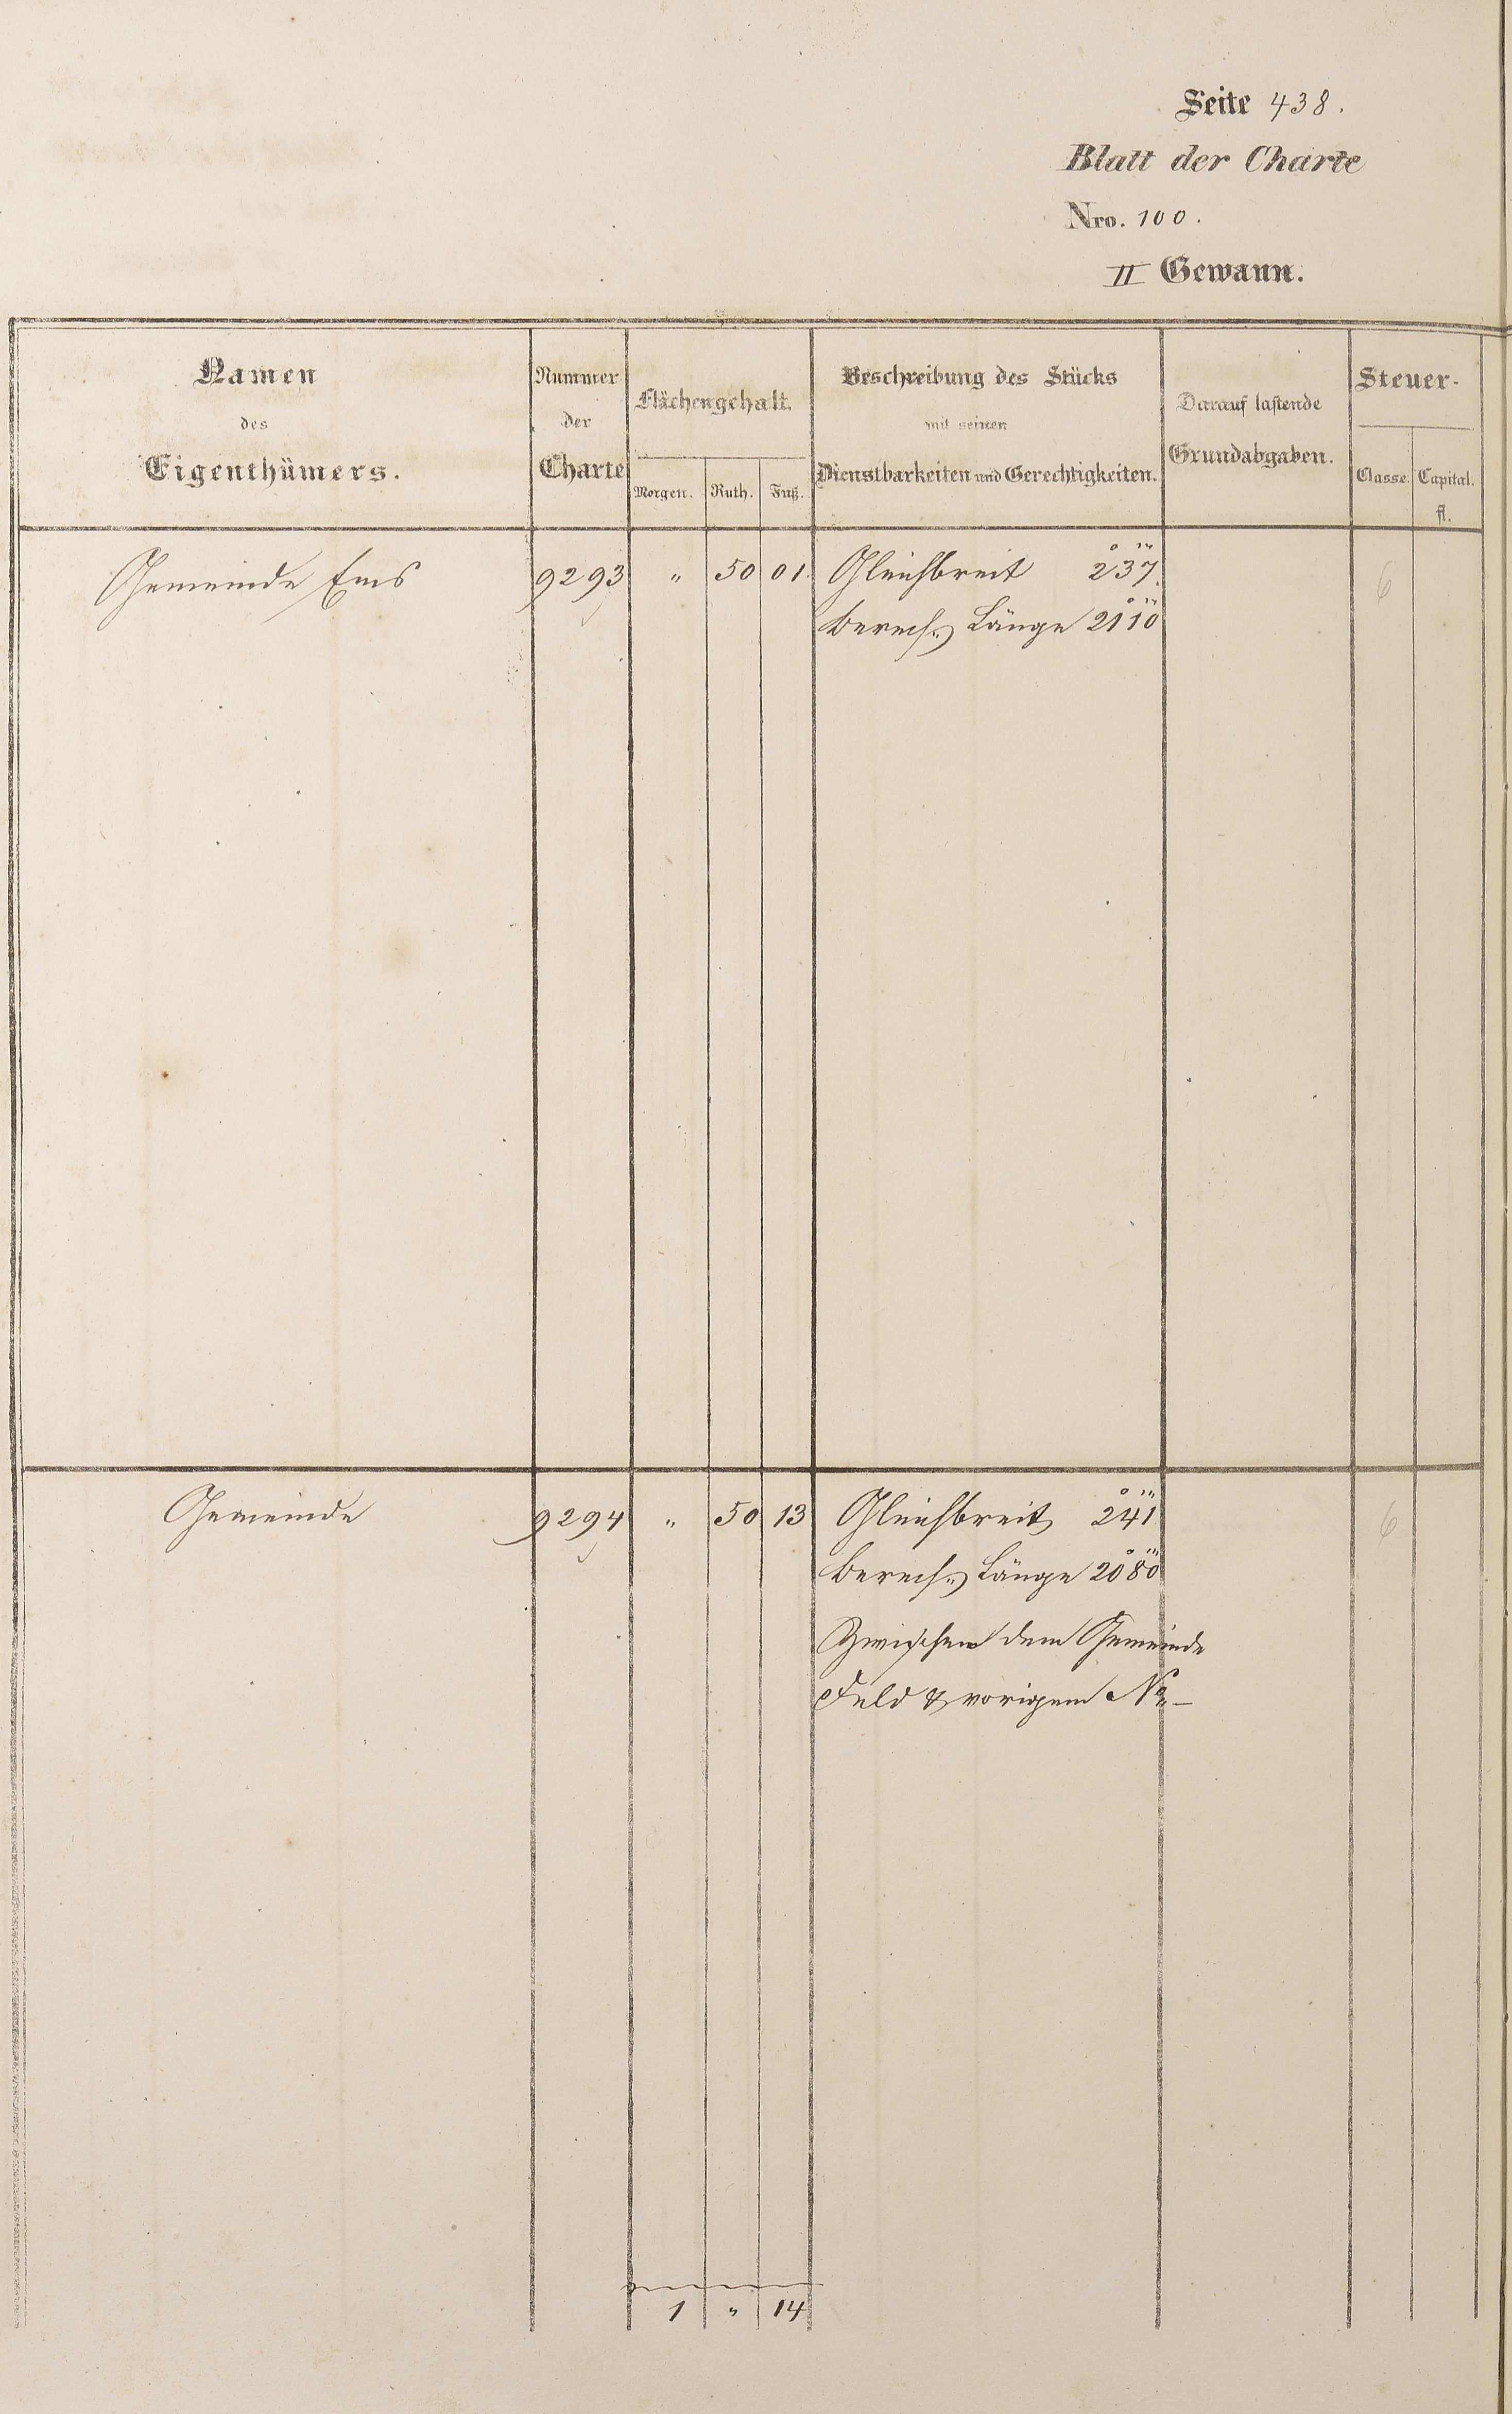 Seite 438.
Blatt der Charte
Nro. 100.
II Gewann.
Namen des Eigenthümers.
Nummer der Charte
Flächengehalt.
Morgen. Ruth. Fuß.
Beschreibung des Stücks
mit seinen
Dienstbarkeiten und Gerechtigkeiten.
Darauf lastende
Grundabgaben.
Steuer-
Classe. Capital.
fl.
Gemeinde Ems 9293 „ 50 01. Gleichbreit 2°37‴. 6
berech. Länge 21°10‴
Gemeinde 9294 „ 50 13 Gleichbreit 2°41‴ 6
berech. Länge 20°80‴
Zwischen dem Gemeinde
Feld & vorigem No
1 „ 14